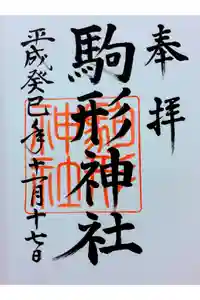 奉拝
駒形神社
平成癸巳年十一月十七日
駒形
神社